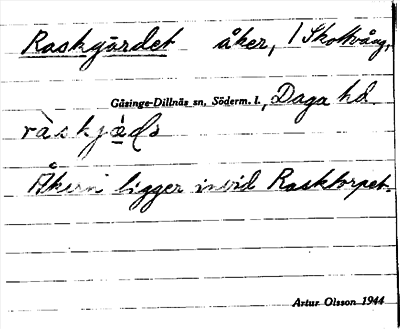 Raskgärdet åker, 1 Skottvång,
Gåsinge-Dillnäs sn, Söderm. l., Daga hd
ràskjä̀ḍə
Åkern ligger invid Rasktorpet.
Artur Olsson 1944